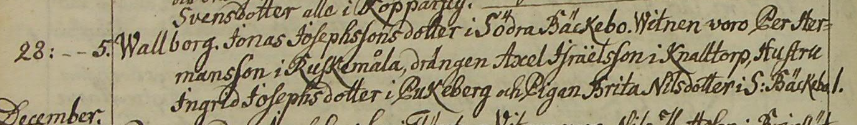 Svensdotter alla i Kopparfly.
28: -- 5. Wallborg. Jonas Josephssons dotter i Södra Bäckebo. Witnen voro Per Her=
mansson i Ruskemåla, drängen Axel Israelsson i Knalttorp, Hustru
Ingrid Josephsdotter i Pukeberg och Pigan Brita Nilsdotter i S: Bäckebo.
December.